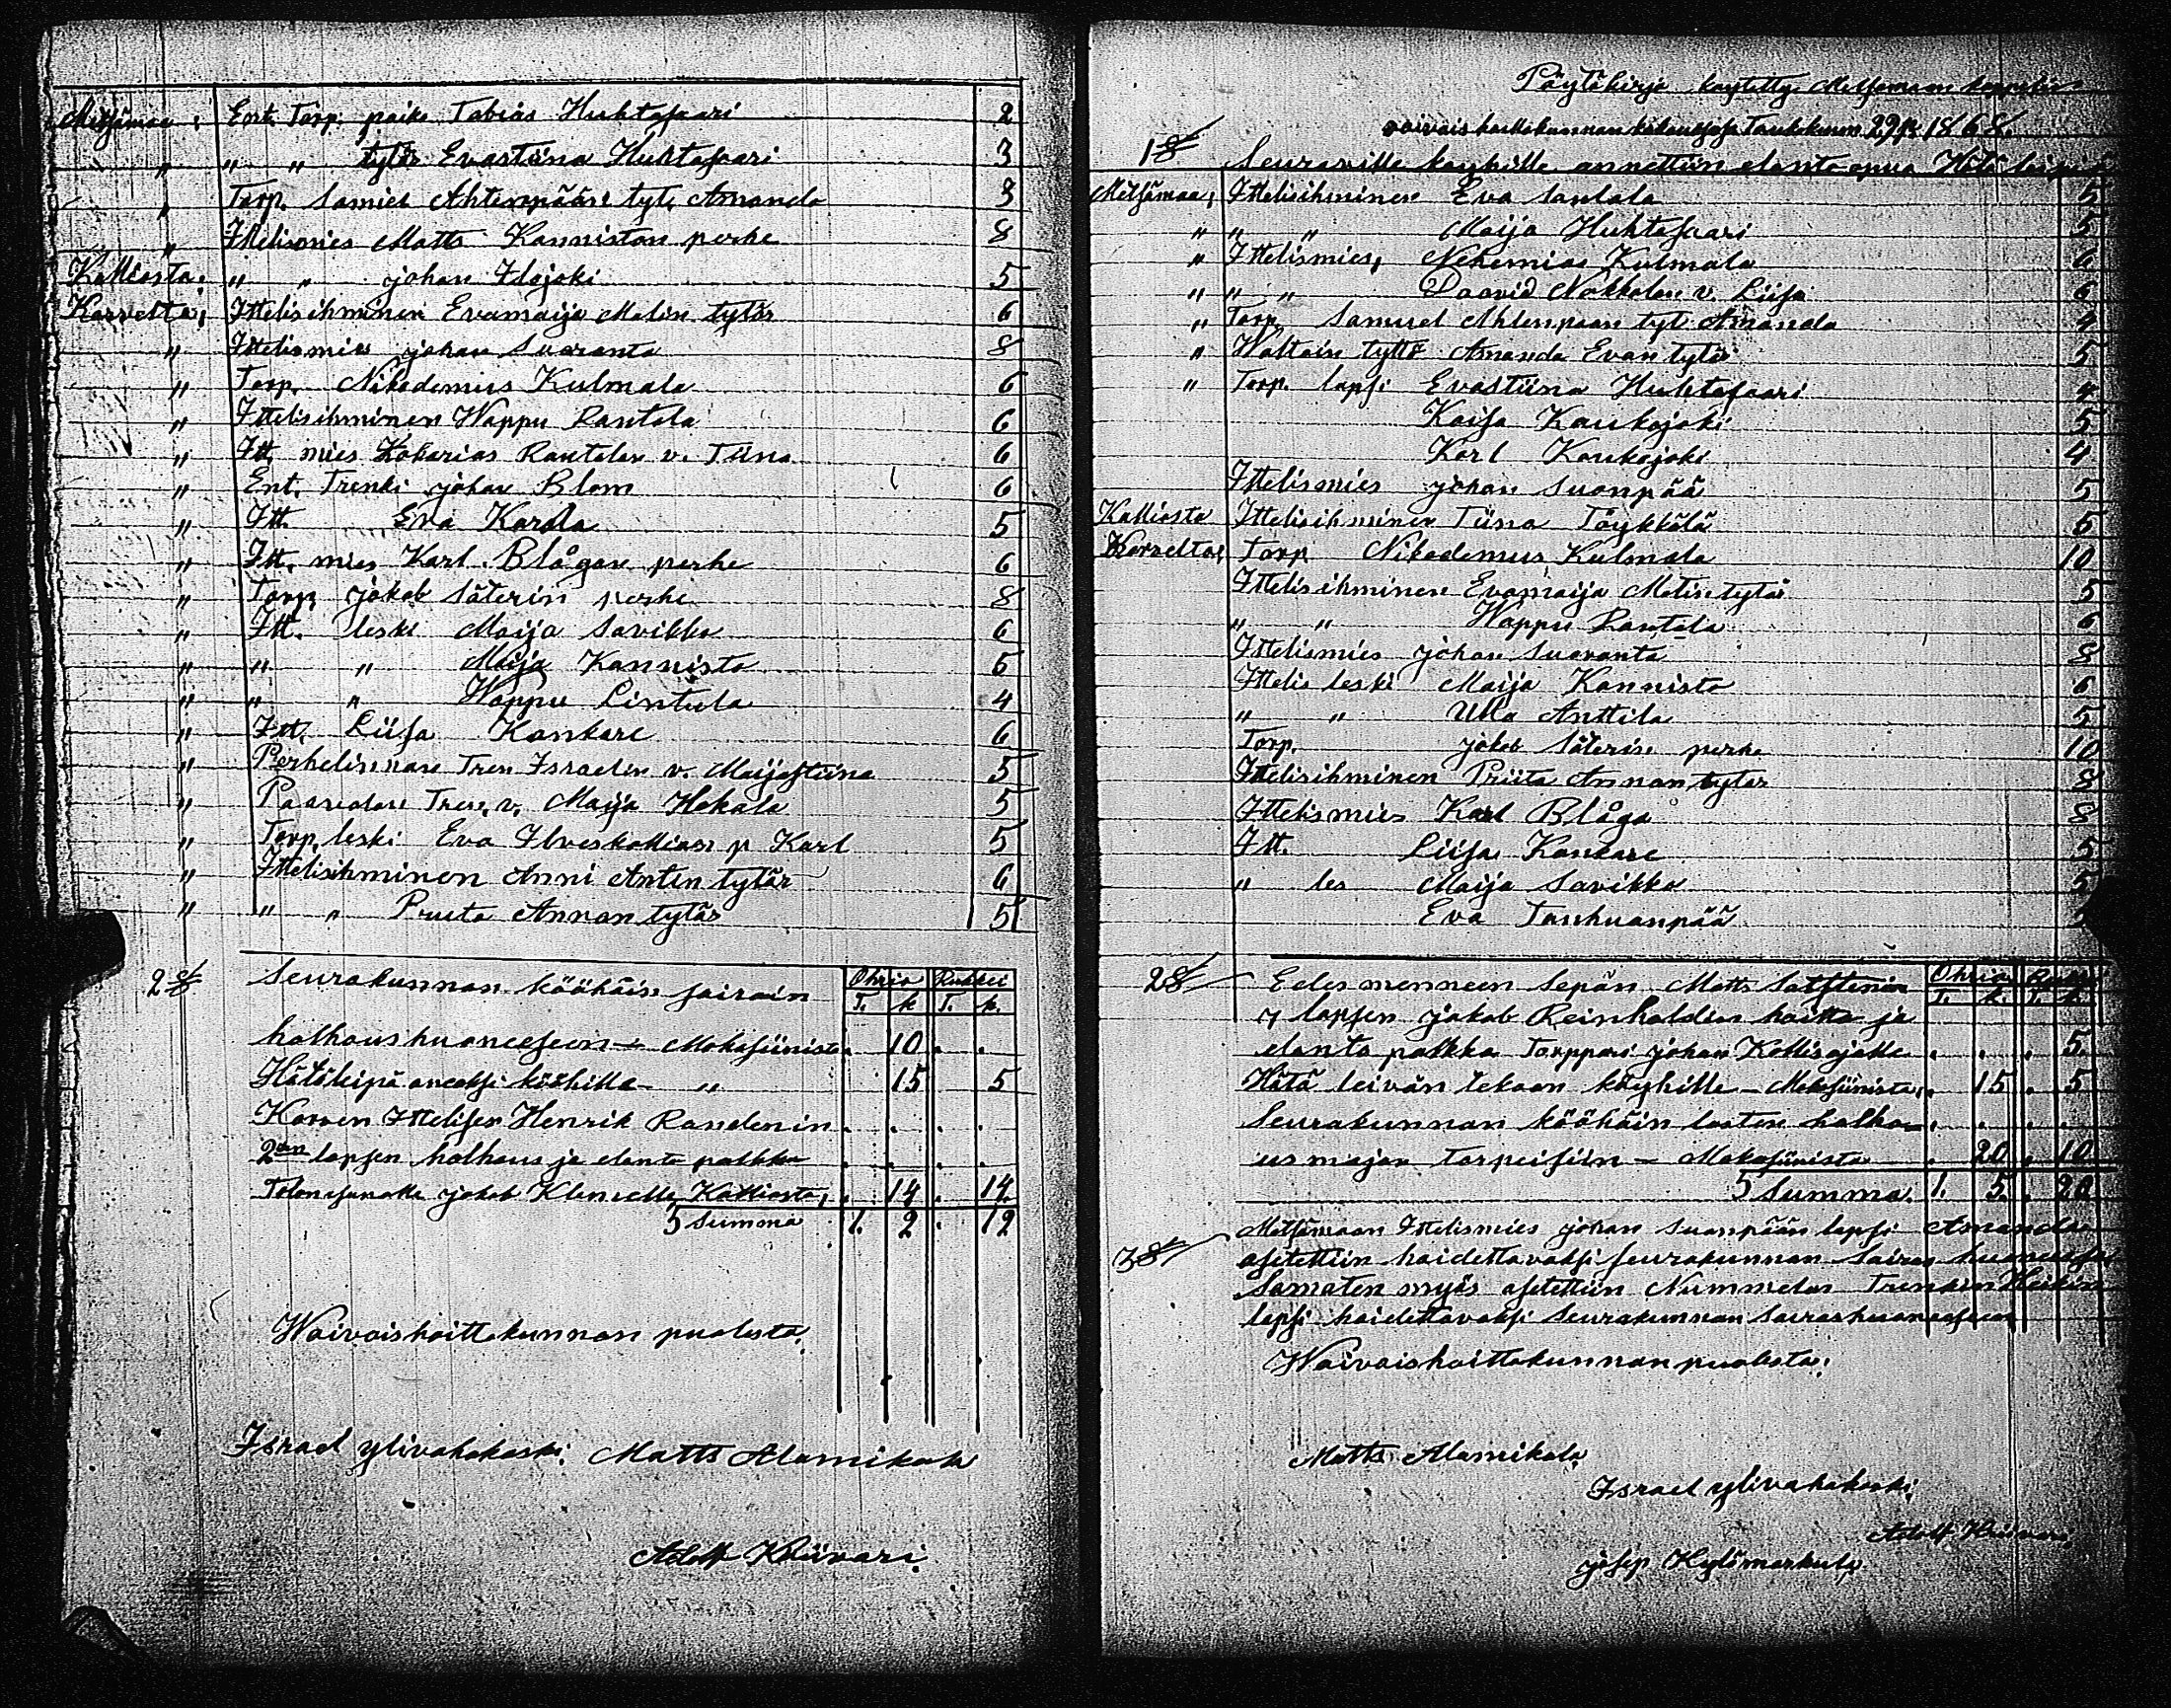 Metsämaa, Ent. Torp. poika Tobias Huhtasaari 2
" " " tytär Evastiina Huhtasaari 3
" Torp. Samiel Ahtenpään tyt. Amanda 3
" Ittelismies Matts Kanniston perhe 8
Kalliosta, " " johan Ilojoki 5
Korvelta, Ittelisihminen Evamaija Matin tytär 6
" Ittelismies johan Suoranta 8
" Torp. Nikodemus Kulmala 6
" Ittelisihminen Wappu Rantala 6
" Itt. mies Zakarias Rantalan v. Tiina 6
" Ent. Trenki johan Blom 6
" Itt. Eva Karola 5
" Itt. mies Karl Blågan perhe 6
" Torp. jakob Säterin perhe 8
" Itt. leski Maija Savikko 6
" " " Maija Kannisto 5
" " " Wappu Lintula 4
" Itt. Liisa Kankare 6
" Perhelinnan Tren Israelin v. Maijastiina 5
" Tren. v. Maija Hakala 5
" Torp. leski Eva Ilveskallion p Karl 5
" Ittelisihminen Anni Antin tytär 6
" " " Priita Annan tytär 5
2 § Seurakunnan kööhäin sairain Ohria Rukkii
T. k T. k.
holhoushuoneeseen – Makasiinista . 10 . .
Hätäleipä aneeksi kööhille – " 15 5
Korven Ittelisen Henrik Randenin . . . .
2en lapsen holhous ja elanto palkka . . . .
Talonisännälle jakob Klemelle Kalliosta, . 14 . 14
5 Summa 1. 2 . 19
Waivaishoittokunnan puolesta,
Israel ylivahakoski, Matts Alamikola
Adolf Kriivari.
Pöytäkirja käytetty Metsämaan kappelin
vaivais hoittokunnan kokouksesa Toukokuun 29 p. 1868.
1 § Seuraville köyhille annettiin elanto apua Hätä leipiä
Metsämaa, Ittelisihminen Eva Santala 5
" " " Maija Huhtasaari 5
" Ittelismies, Nehemias Kulmala 6
" " " Daavid Nokkalan v. Liisa 6
" Torp. Samuel Ahtenpään tyt. Amanda 4
" Waltain tyttö Amanda Evan tytär 5
" Torp. lapsi Evastiina Huhtasaari 4
Kaisa Kaukojoki 5
Karl Kaukojoki 4
Ittelismies johan Suonpää 5
Kalliosta Ittelisihminen Tiina Töykkälä 5
Korvelta, Torp. Nikodemus Kulmala 10
Ittelisihminen Evamaija Matin tytär 5
" " Wappu Rantala 6
Ittelismies johan Suoranta 8
Ittelis leski Maija Kannisto 6
" " Ulla Anttila 5
Torp. jakob Säterin perhe 10
Ittelisihminen Priita Annan tytär 8
Ittelismies Karl Blåga 8
Itt. Liisa Kankare 5
" les Maija Savikko 5
Eva Tanhuanpää
2 § Edes menneen Sepän Matts Ohria
T. k. T. k.
lapsen jakob Reinholdin hoitto ja
elanto palkka Torppari johan Kallisojalle . . . 5
Hätä leivän tekoon köyhille – Makasiinista, . 15 . 5
Seurakunnan kööhäin lasten holho= . . . .
us majan tarpeisiin – Makasiinista . 20 . 10
5 Summa. 1. 5 . 20
3 § Metsämaan Ittelismies johan Suonpään lapsi Amanda
asetettiin hoidettavaksi seurakunnan Sairas huoneesa,
Samaten myös asetettiin Nummelan Trenkin Heikin
lapsi hoidettavaksi Seurakunnan Sairashuoneeseen
Waivaishoittokunnan puolesta,
Matts Alamikola
Israel ylivahakoski,
Adolf Kriivari,
josep Kylämarkula